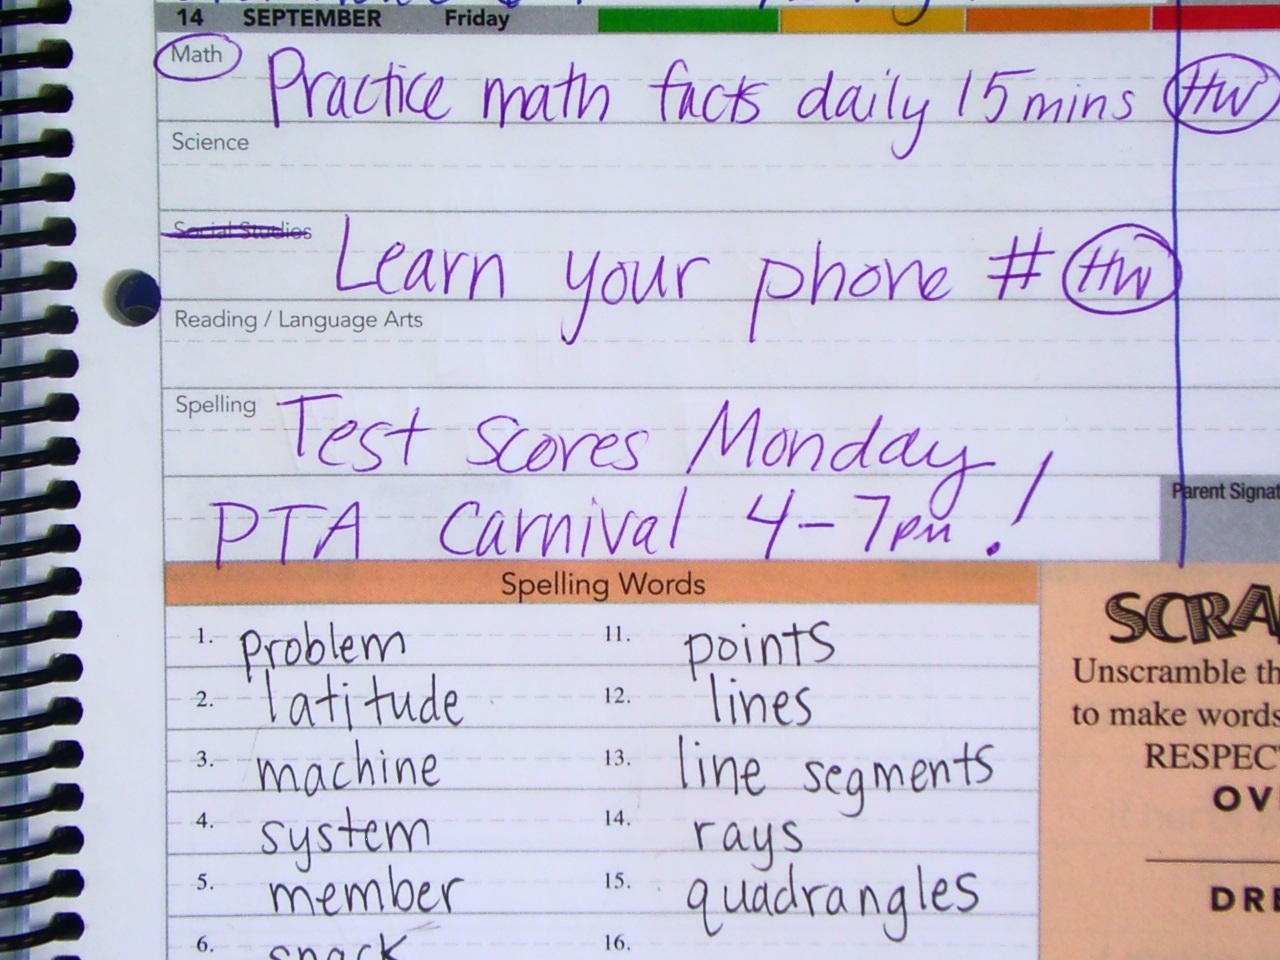 14 SEPTEMBER Friday
Math Practice math facts daily 15 mins HW
Science
Social Studies Learn your phone # HW
Reading / Language Arts
Spelling Test Scores Monday
PTA Carnival 4-7pm!
Parent Signat
Spelling Words
1. problem 11. points
2. latitude 12. lines
3. machine 13. line segments
4. system 14. rays
5. member 15. quadrangles
6. snack 16.
SCRA
Unscramble th
to make words
RESPECT
OV
DRE